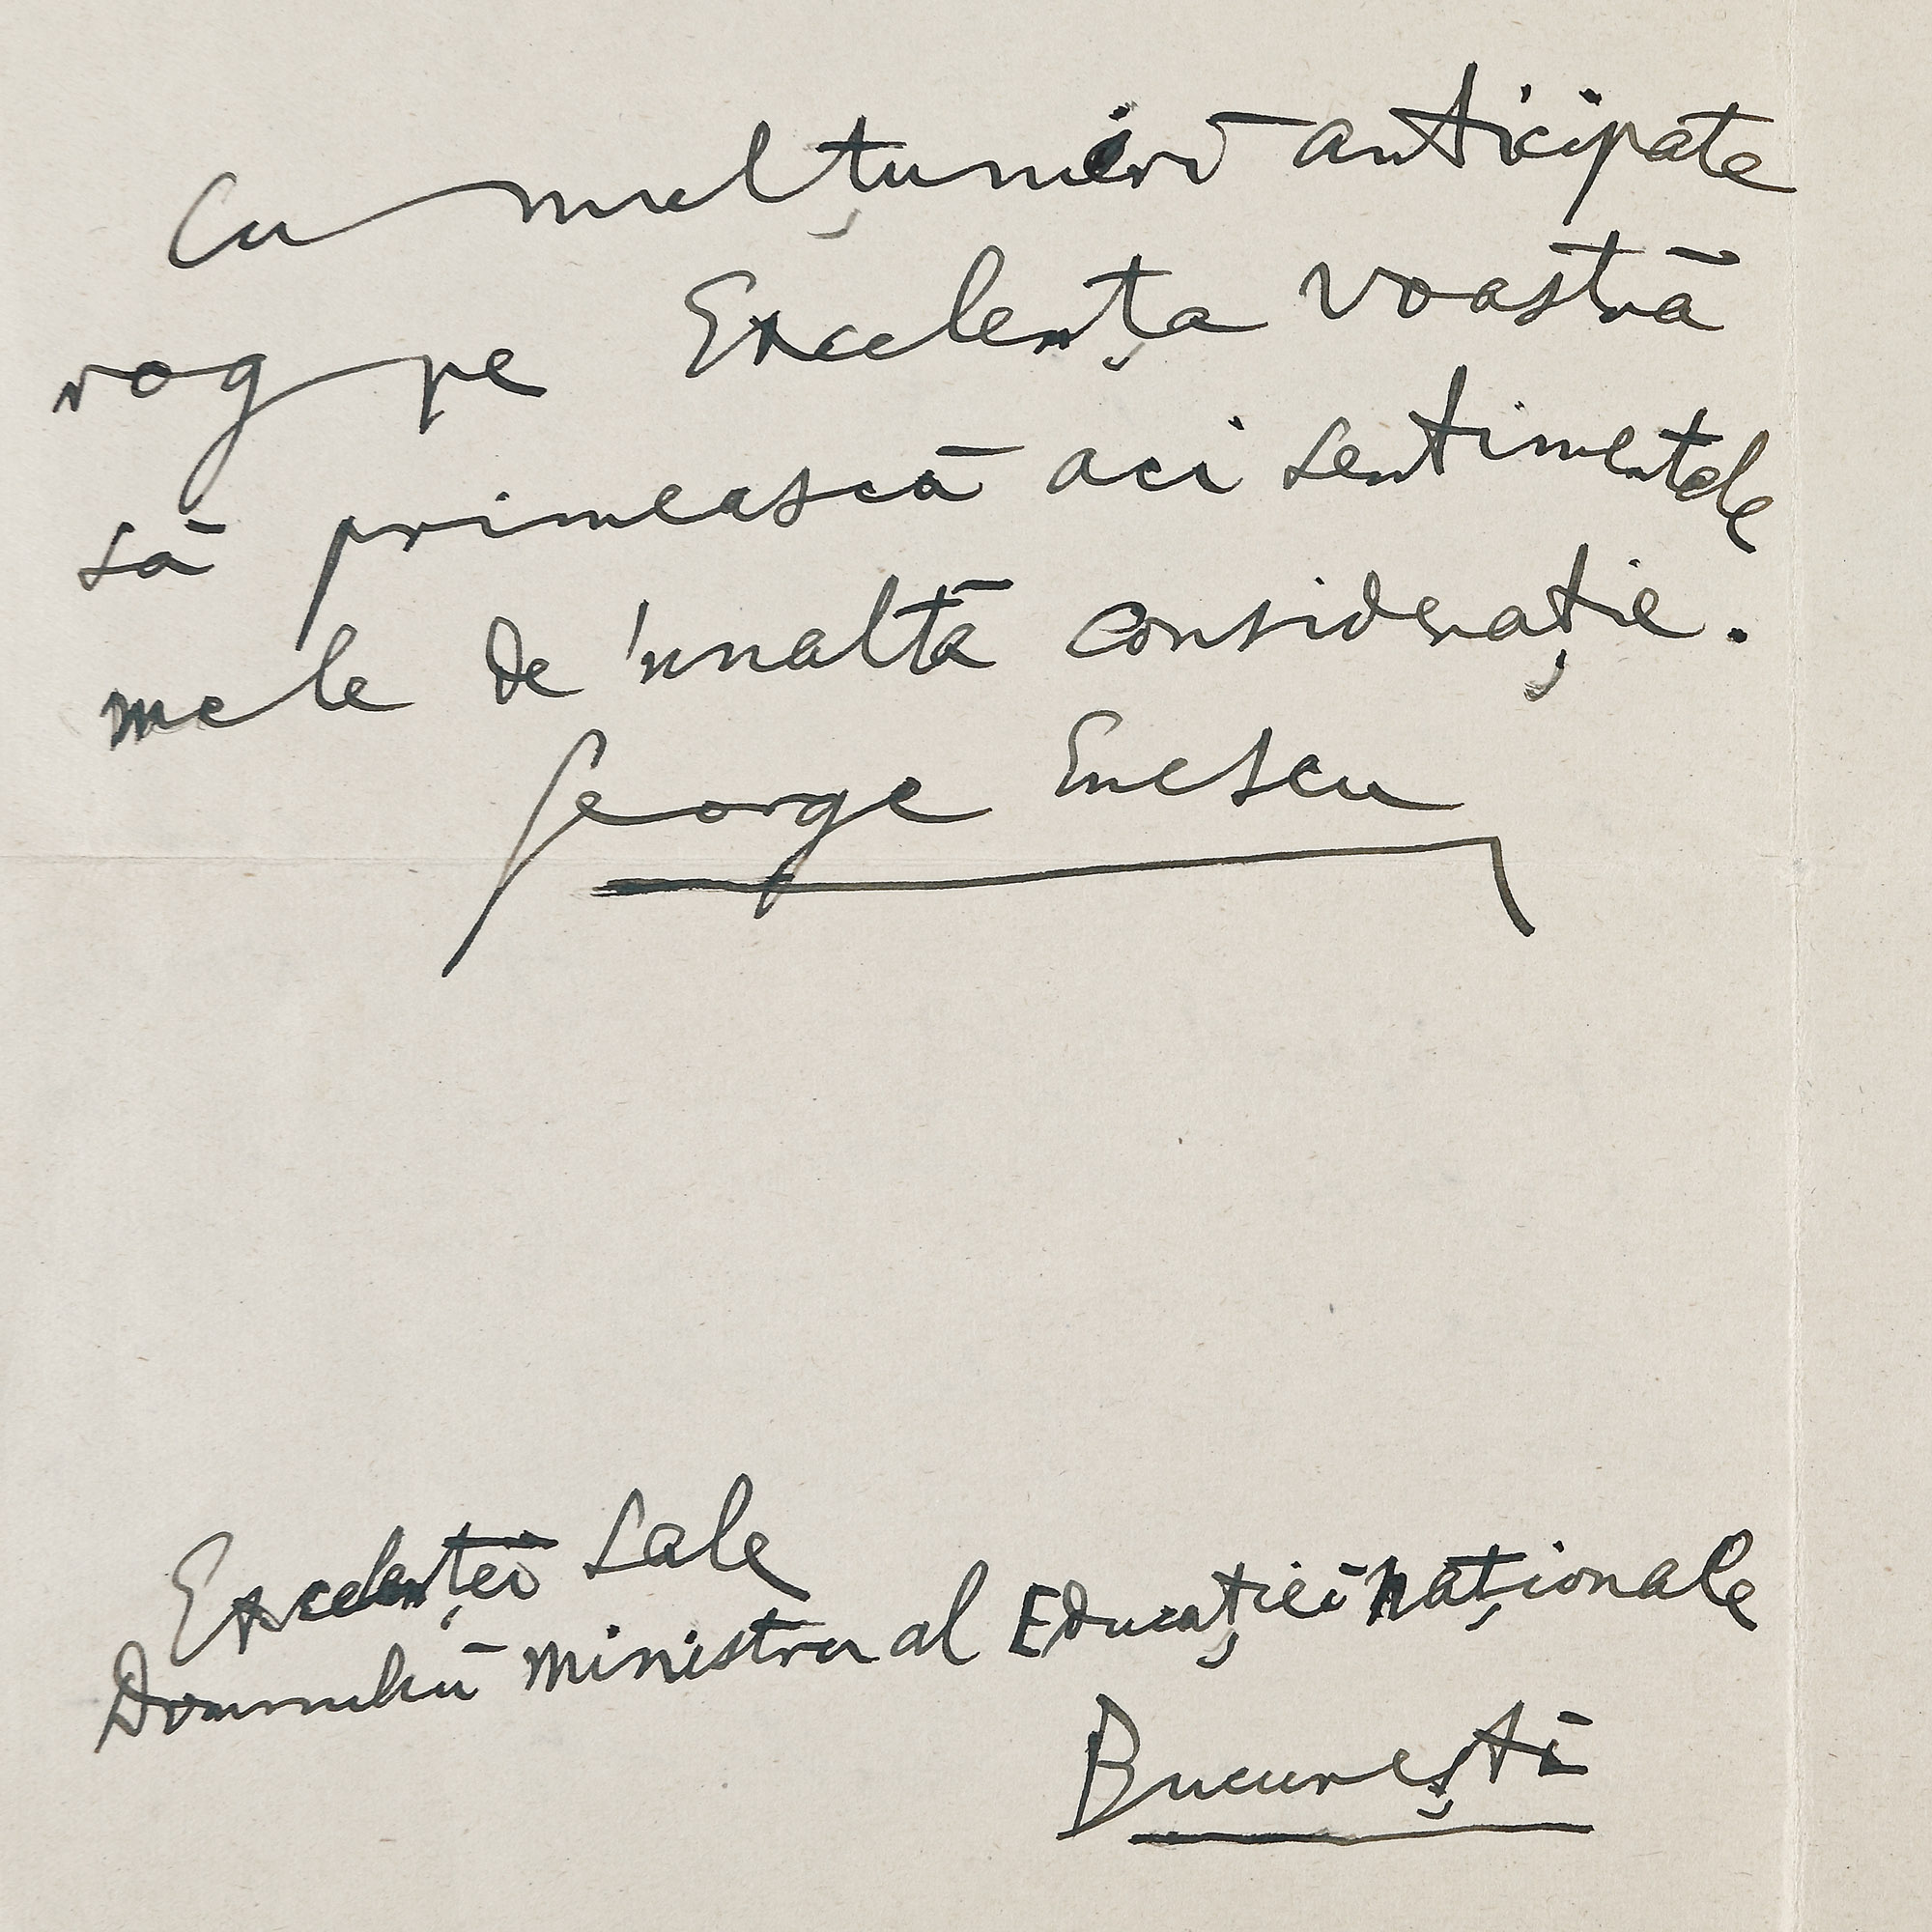 Cu mulțumiri anticipate
rog pe Excelența voastră
să primească aci sentimentele
mele de 'nnaltă considerație.
George Enescu
Excelenței Sale
Domnului ministru al Educației naționale
București